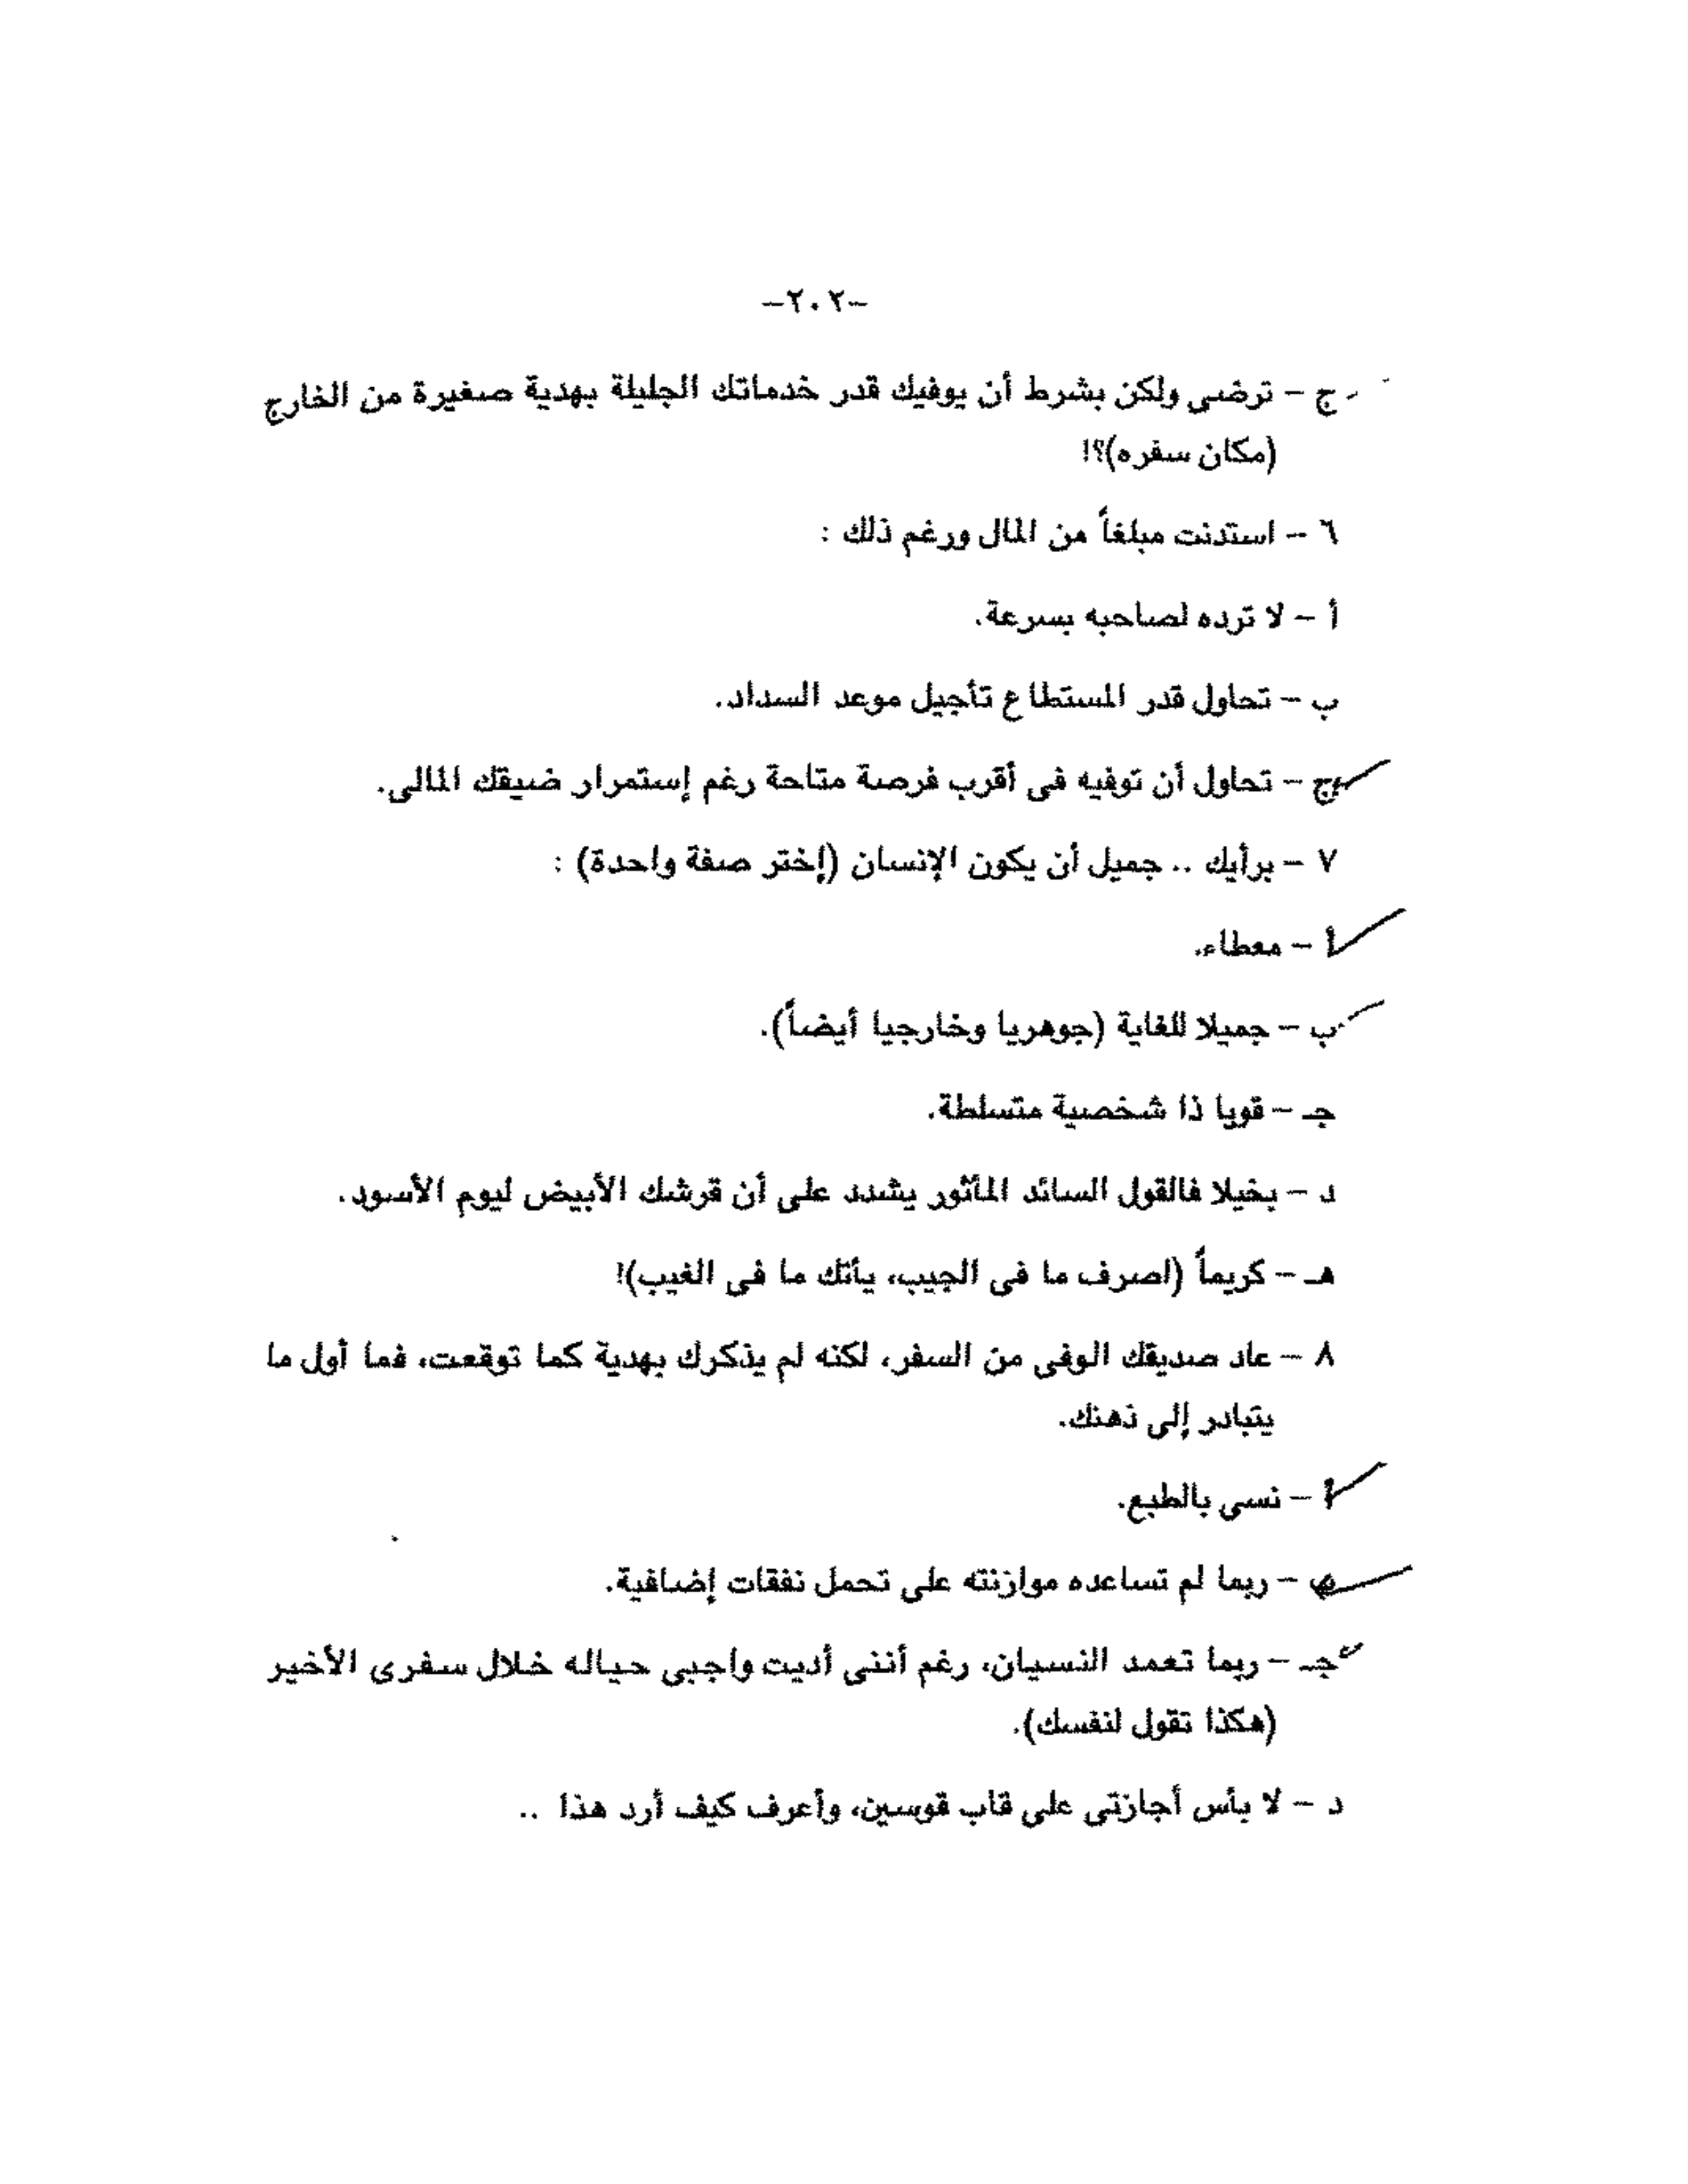 -٢٠٢-
ج - ترضى ولكن بشرط أن يوفيك قدر خدماتك الجليلة بهدية صغيرة من الخارج
(مكان سفره)؟!
٦ - استدنت مبلغاً من المال ورغم ذلك :
أ - لا ترده لصاحبه بسرعة.
ب - تحاول قدر المستطاع تأجيل موعد السداد.
ج - تحاول أن توفيه فى أقرب فرصة متاحة رغم إستمرار ضيقك المالى.
٧ - برأيك .. جميل أن يكون الإنسان (إختر صفة واحدة) :
أ - معطاء.
ب - جميلا للغاية (جوهريا وخارجيا أيضاً).
جـ - قويا ذا شخصية متسلطة.
د - بخيلا فالقول السائد المأثور يشدد على أن قرشك الأبيض ليوم الأسود.
هـ - كريماً (اصرف ما فى الجيب، يأتك ما فى الغيب)!
٨ - عاد صديقك الوفى من السفر، لكنه لم يذكرك بهدية كما توقعت، فما أول ما
يتبادر إلى ذهنك.
أ - نسى بالطبع.
ب - ربما لم تساعده موازنته على تحمل نفقات إضافية.
جـ - ربما تعمد النسيان، رغم أننى أديت واجبى حياله خلال سفرى الأخير
(هكذا تقول لنفسك).
د - لا بأس أجازتى على قاب قوسين، وأعرف كيف أرد هذا ..